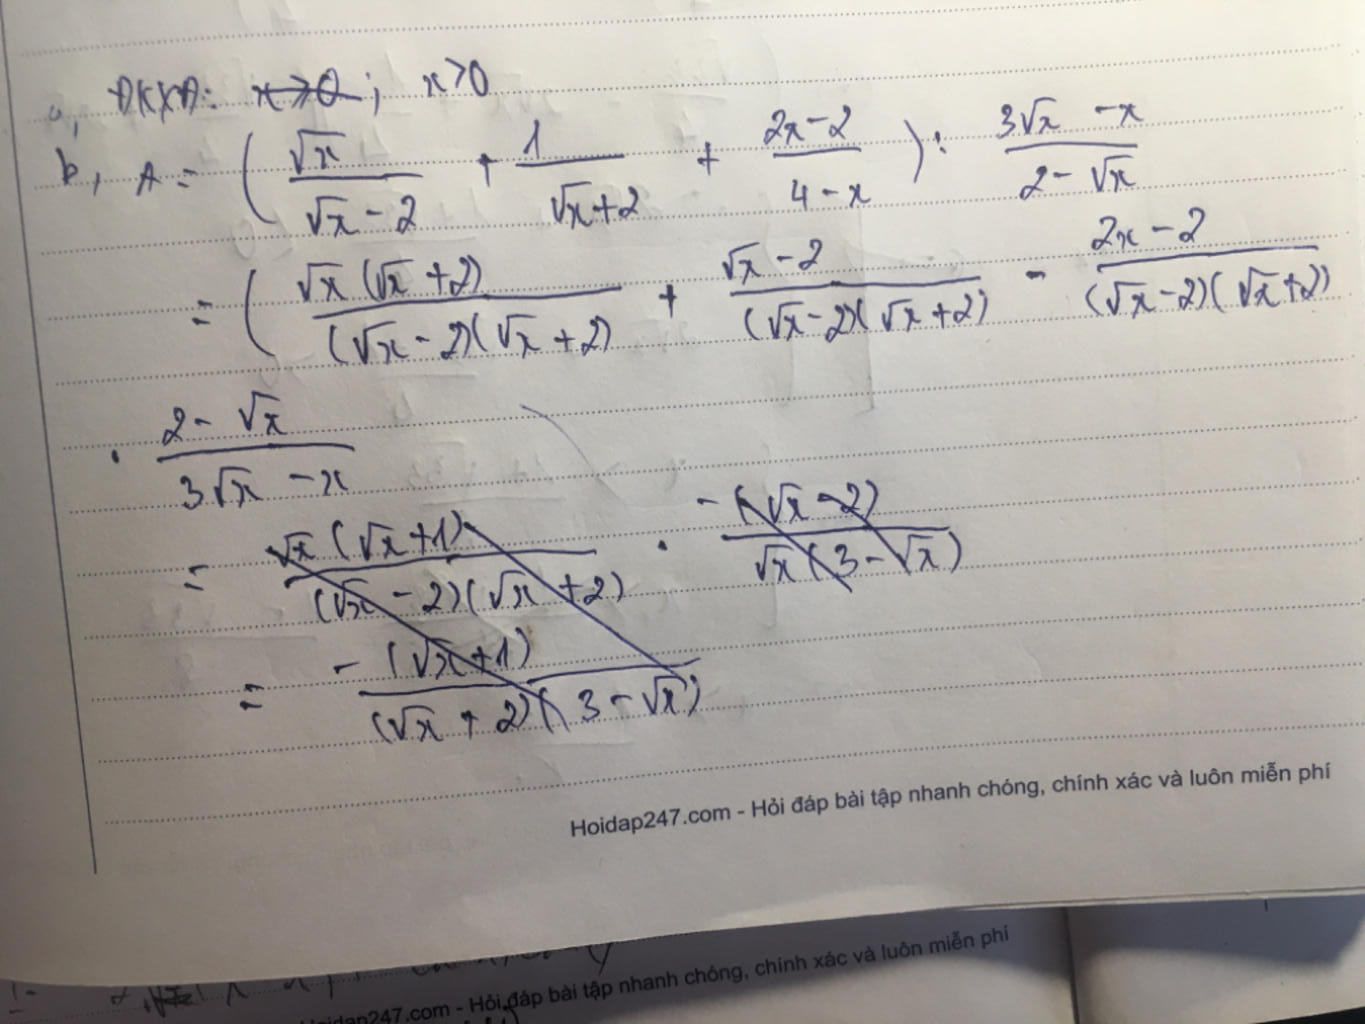 a, ĐKXĐ: x>0; x>0
b, A = ( √x / (√x - 2) + 1 / (√x + 2) + (2x - 2) / (4 - x) ) : (3√x - x) / (2 - √x)
= ( √x (√x + 2) / ((√x - 2)(√x + 2)) + (√x - 2) / ((√x - 2)(√x + 2)) - (2x - 2) / ((√x - 2)(√x + 2))
. (2 - √x) / (3√x - x)
= √x (√x + 1) / ((√x - 2)(√x + 2)) . -(√x - 2) / (√x (3 - √x))
= -(√x + 1) / ((√x + 2)(3 - √x))
Hoidap247.com - Hỏi đáp bài tập nhanh chóng, chính xác và luôn miễn phí
Hoidap247.com - Hỏi đáp bài tập nhanh chóng, chính xác và luôn miễn phí